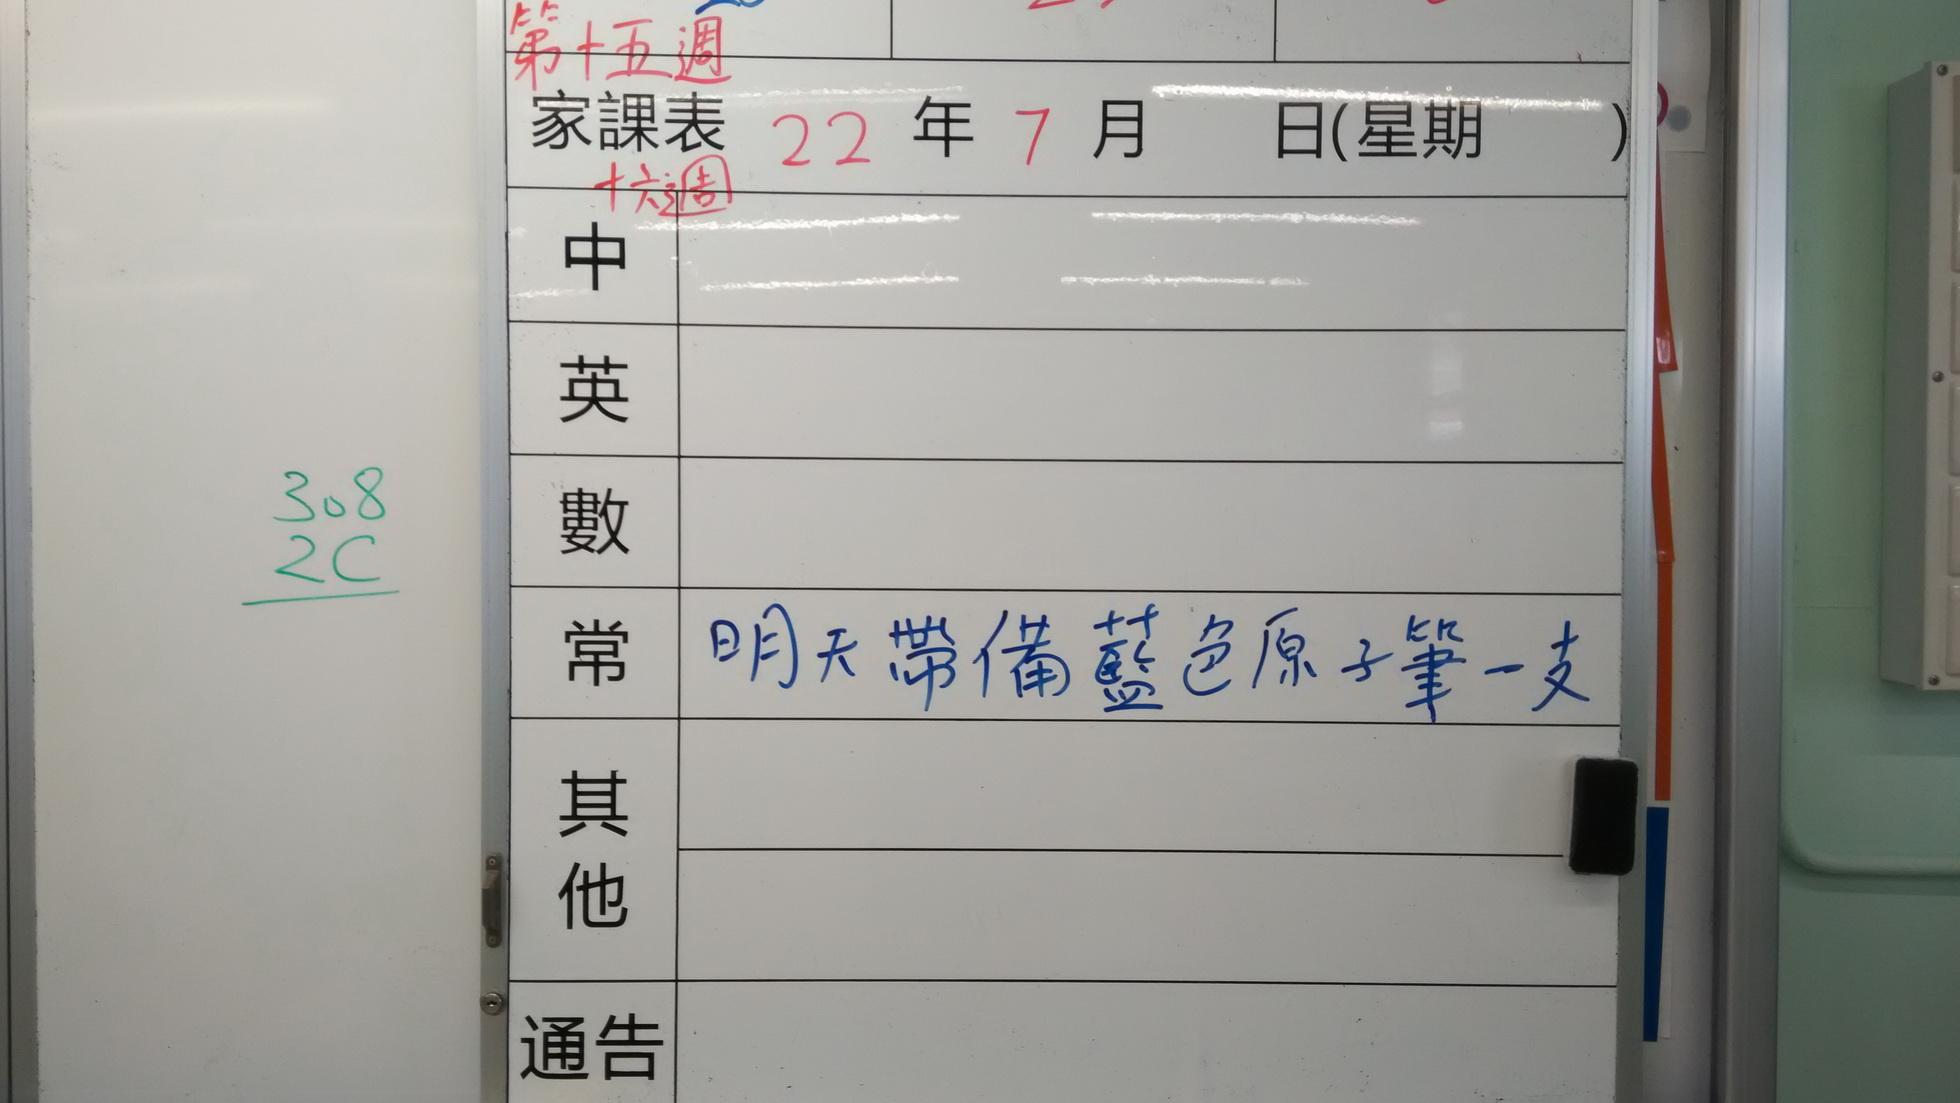 第十五週
家課表 22 年 7 月 日(星期 )
十六週
中
英
數
308
2C
常 明天帶備藍色原子筆一支
其他
通告